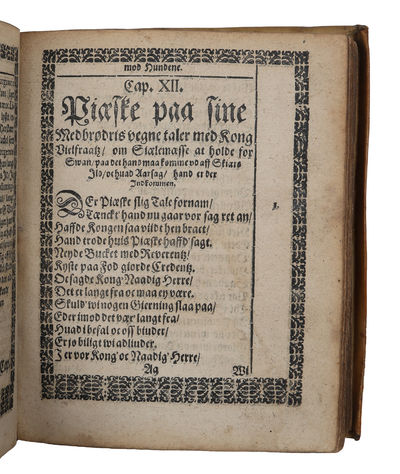 mod Hundene.
Cap. XII.
Piæske paa sine
Medbrødris vegne taler med Kong
Vielfraatz/ om Siælemæsse at holde for
Swan/ paa det hans maa komme vd aff Skiærs
Ild/ oc huad Aarsag/ hand er der
Indkommen.
DEr Piæske slig Tale fornam/
Tænckte hand nu gaar vor sag ret an/
Haffde Kongen saa vildt hen bract/
Hand trode huis Piæske haffd' sagt.
Neyde Bucket med Reverentz/
Kyste paa Fod giorde Credentz.
Oc sagde Kong Naadig Herre/
Det er langt fra oc maa ey være.
Skuld' wi nogen Gierning slaa paa/
Eder imod det vær langt fra/
Huad I befal oc oss biuder/
Er jo billigt wi adlinder.
I er vor Kong oc Naadig Herre/
Ag Wi